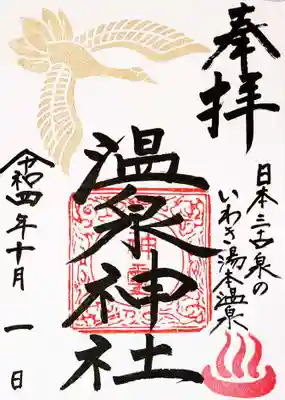 奉拝
日本三古泉の
いわき湯本温泉
温泉神社
令和四年十月一日